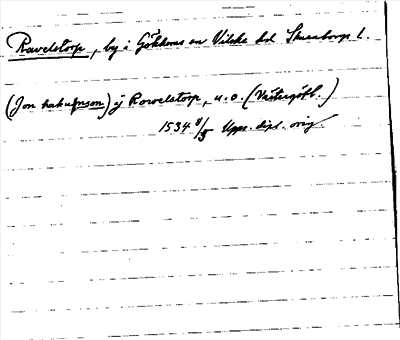 Ravelstorp, by i Gökhems sn Vilske hd. Skaraborgs l.
(Jon hakunsson) ÿ Rowelstorp, u. o. (Västergötl.)
1534 8/5 Upps. dipl. orig.